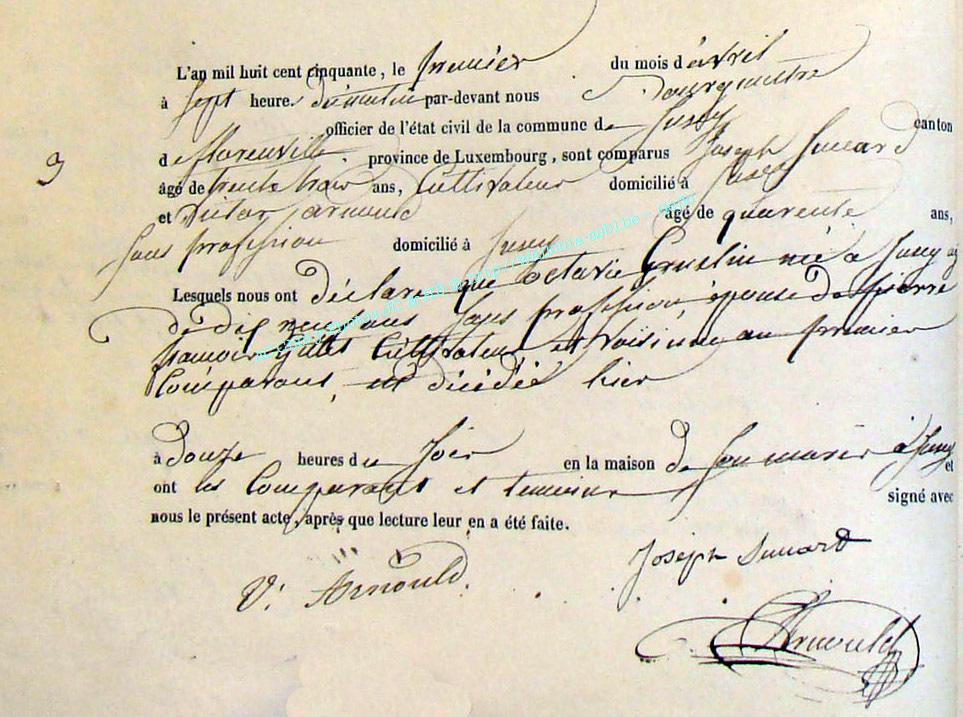 L'an mil huit cent cinquante, le premier du mois d'avril
à Sept heure. du matin par-devant nous Bourgmestre
officier de l'état civil de la commune de
de florenville. province de Luxembourg, sont comparus Joseph canton
3
âgé de trente trois ans, Cultivateur domicilié à
et Victor arnould âgé de quarente ans,
Sans profession domicilié à
Lesquels nous ont déclaré que Octavie née à
de dix neuf ans Sans profession, épouse de pierre
francois Gillet Cultivateur et voisine au premier
Comparant, est décédée hier
à douze heures du Soir en la maison de Son marie à
ont les Comparant et temoins et signé avec
nous le présent acte, après que lecture leur en a été faite.
V. Arnould. Joseph
Arnould